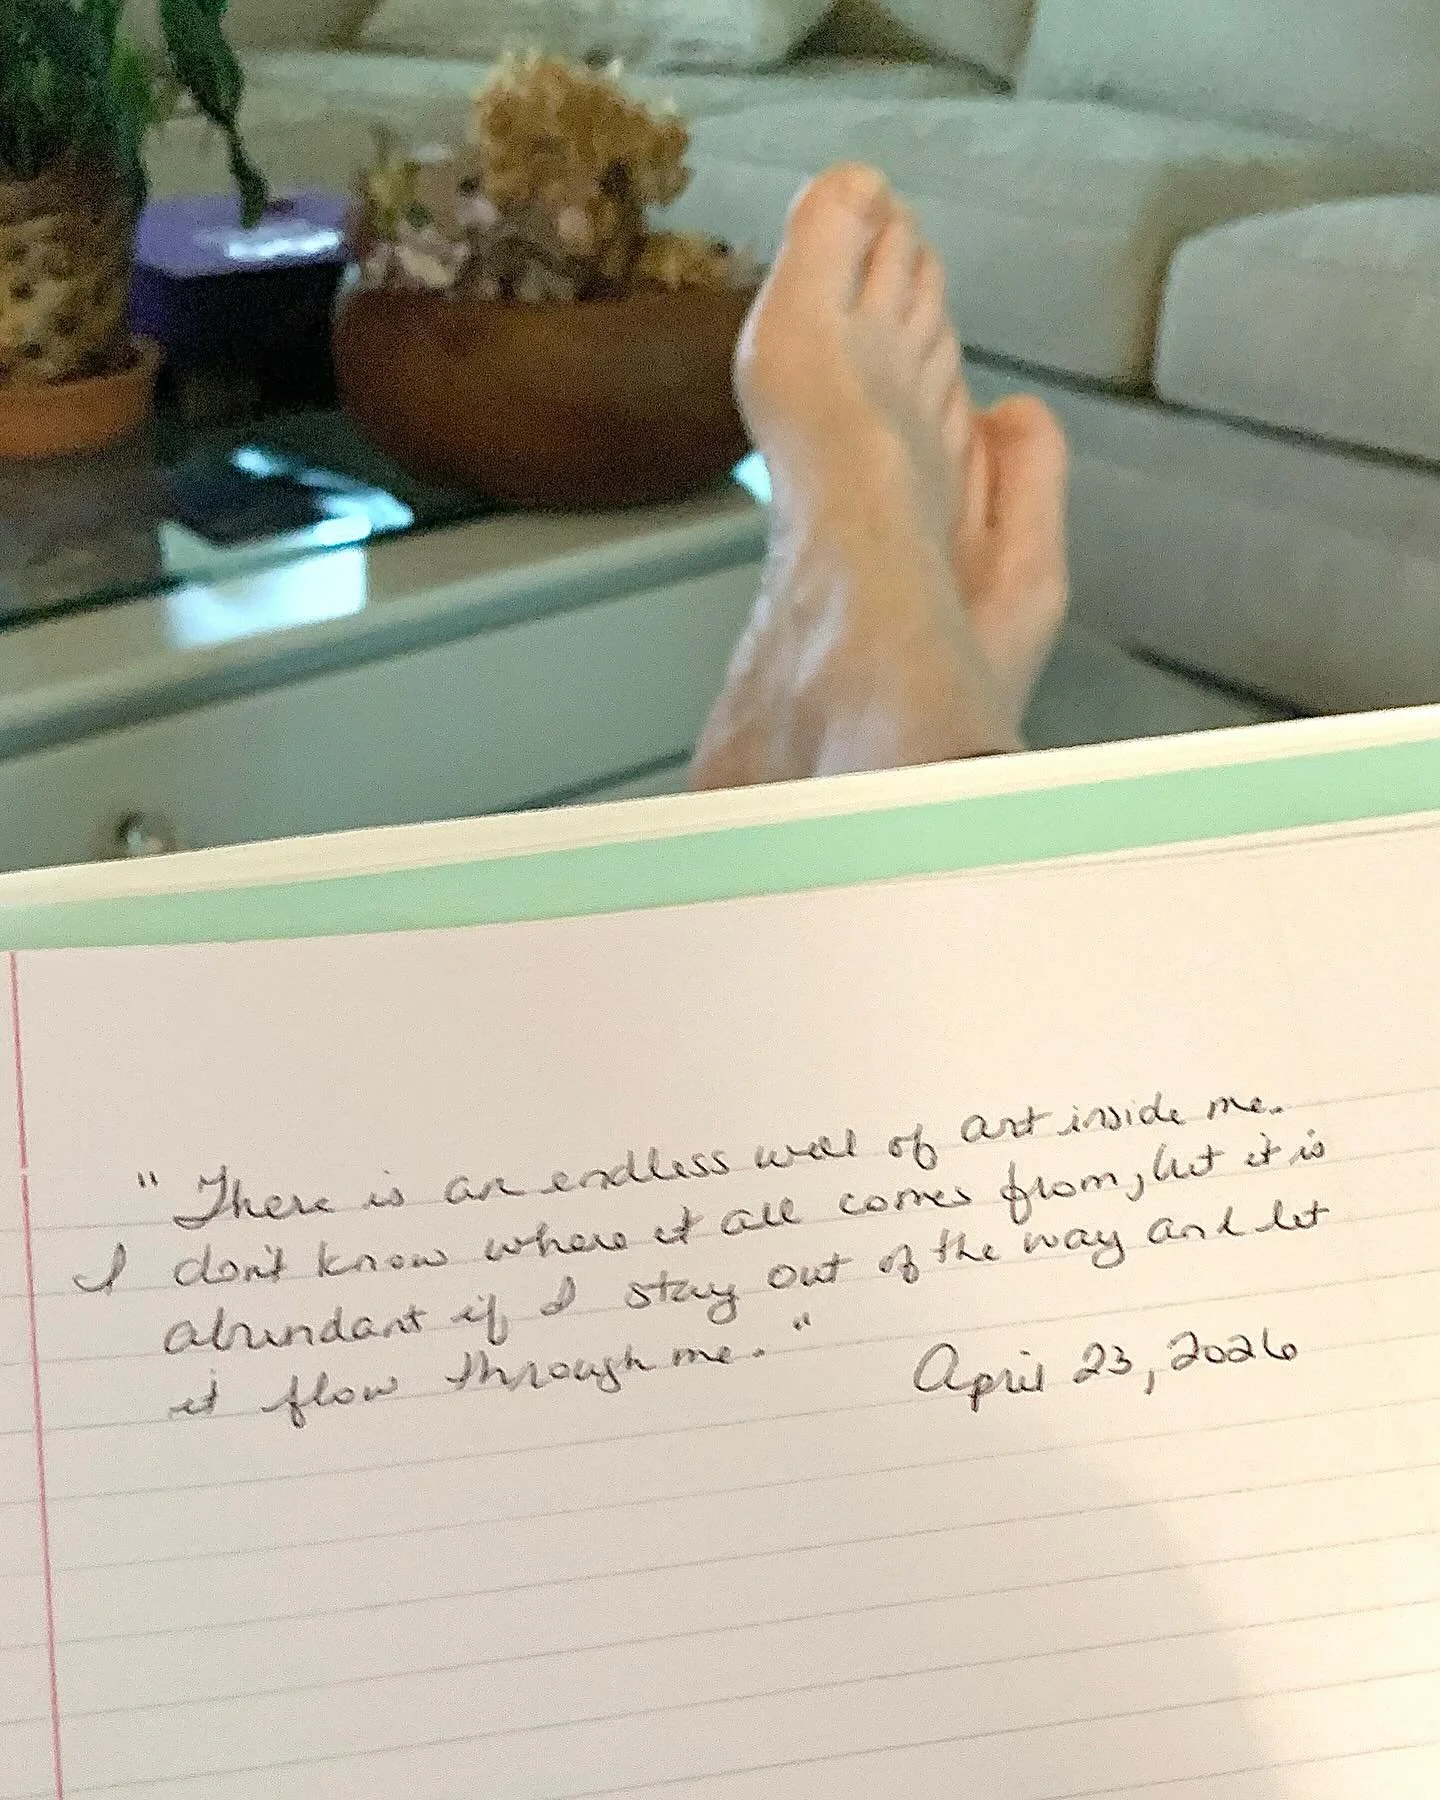 " There is an endless well of art inside me.
I don't know where it all comes from, but it is
abundant if I stay out of the way and let
it flow through me. "
April 23, 2026